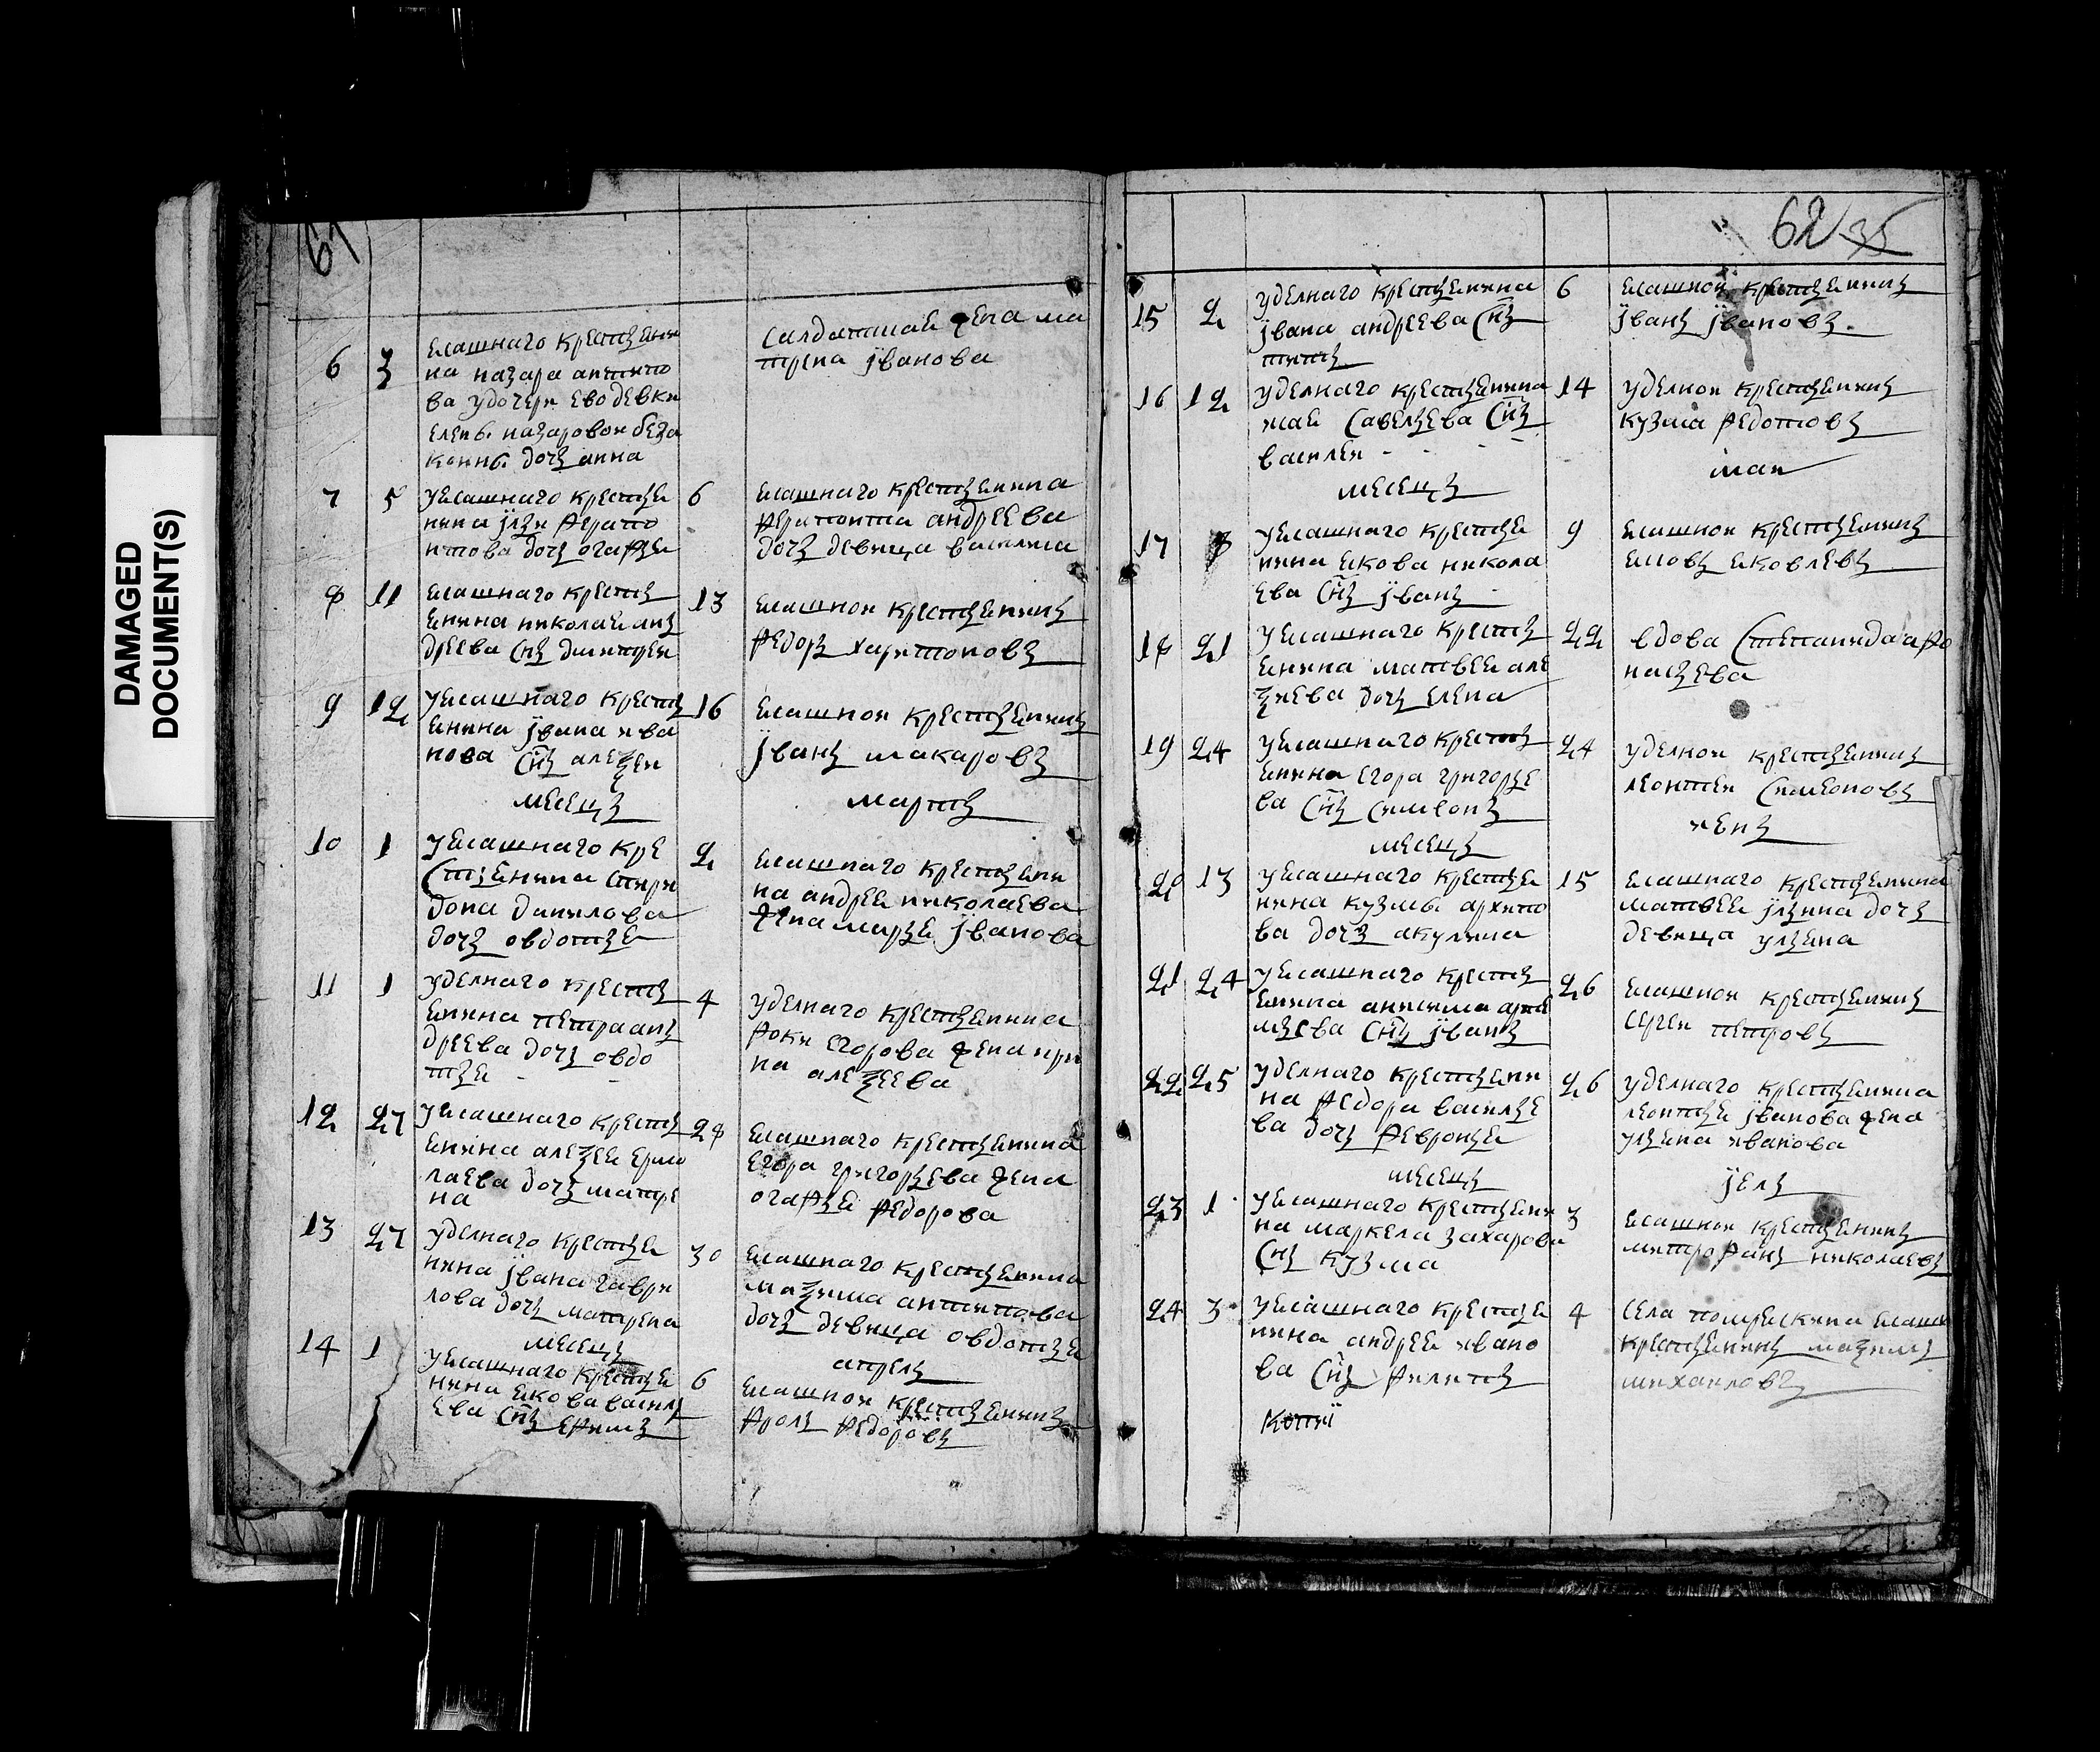 DAMAGED
DOCUMENT(S)
61
6 3 ясашнаго крестьяни
на назара антипо
ва удочери ево девки
елены назаровой беза
конны дочь анна
салдатшая жена ма
трена iванова
7 5 Уясашнаго крестья
нина iльи ферапо
нтова дочь огафья
6 ясашнаго крестьянина
ферапонта андреева
дочь девица василиса
8 11 ясашнаго кресть
янина николая анъ
дреева снъ дмитрей
13 ясашной крестьянинъ
федоръ харитоновъ
9 12 Уясашнаго кресть
янина iвана ива
нова снъ алеѯей
16 ясашной крестьянинъ
iванъ макаровъ
месецъ мартъ
10 1 Уясашнаго кре
стьянина спири
дона данилова
дочь овдотья
2 ясашнаго крестьяни
на андрея николаева
жена марья iванова
11 1 уделнаго кресть
янина петра анъ
дреева дочь овдо
тья
4 уделнаго крестьянина
фоки егорова жена ири
на алеѯеева
12 27 Уясашнаго кресть
янина алеѯея ермо
лаева дочь матре
на
28 ясашнаго крестьянина
егора григорьева жена
огафья федорова
13 27 уделнаго крестья
нина iвана гаври
лова дочь матрена
30 ясашнаго крестьянина
маѯима антипова
дочь девица овдотья
месецъ апрель
14 1 Уясашнаго крестья
нина якова василь
ева снъ ефимъ
6 ясашной крестьянинъ
фролъ федоровъ
62 35
15 2 уделнаго крестьянина
iвана андреева снъ
титъ
6 ясашной крестьянинъ
iванъ iвановъ
16 12 уделнаго крестьянина
савельева снъ
василей
14 уделной крестьянинъ
кузма федотовъ
месецъ май
17 8 Уясашнаго крестья
нина якова никола
ева снъ iванъ
9 ясашной крестьянинъ
яковлевъ
18 21 Уясашнаго кресть
янина матвея але
ѯиева дочь елена
22 вдова степанида афо
насьева
19 24 Уясашнаго кресть
янина егора григорье
ва снъ симионъ
24 уделной крестьянинъ
леонтей симеоновъ
месецъ июнь
20 13 Уясашнаго крестья
нина кузмы архипо
ва дочь акулина
15 ясашнаго крестьянина
матвея iльина дочь
девица ульяна
21 24 Уясашнаго кресть
янина анисима арта
мьева снъ iванъ
26 ясашной крестьянинъ
сергей петровъ
22 25 уделнаго крестьяни
на федора василье
ва дочь февронья
26 уделнаго крестьянина
леонтья iванова жена
ульяна иванова
месецъ iюль
23 1 Уясашнаго крестьяни
на маркела захарова
снъ кузма
3 ясашной крестьянинъ
митрофанъ николаевъ
24 3 Уясашнаго крестья
нина андрея ивано
ва снъ филипъ
4 села ясашн
крестьянинъ маѯимъ
михаиловъ
копiï